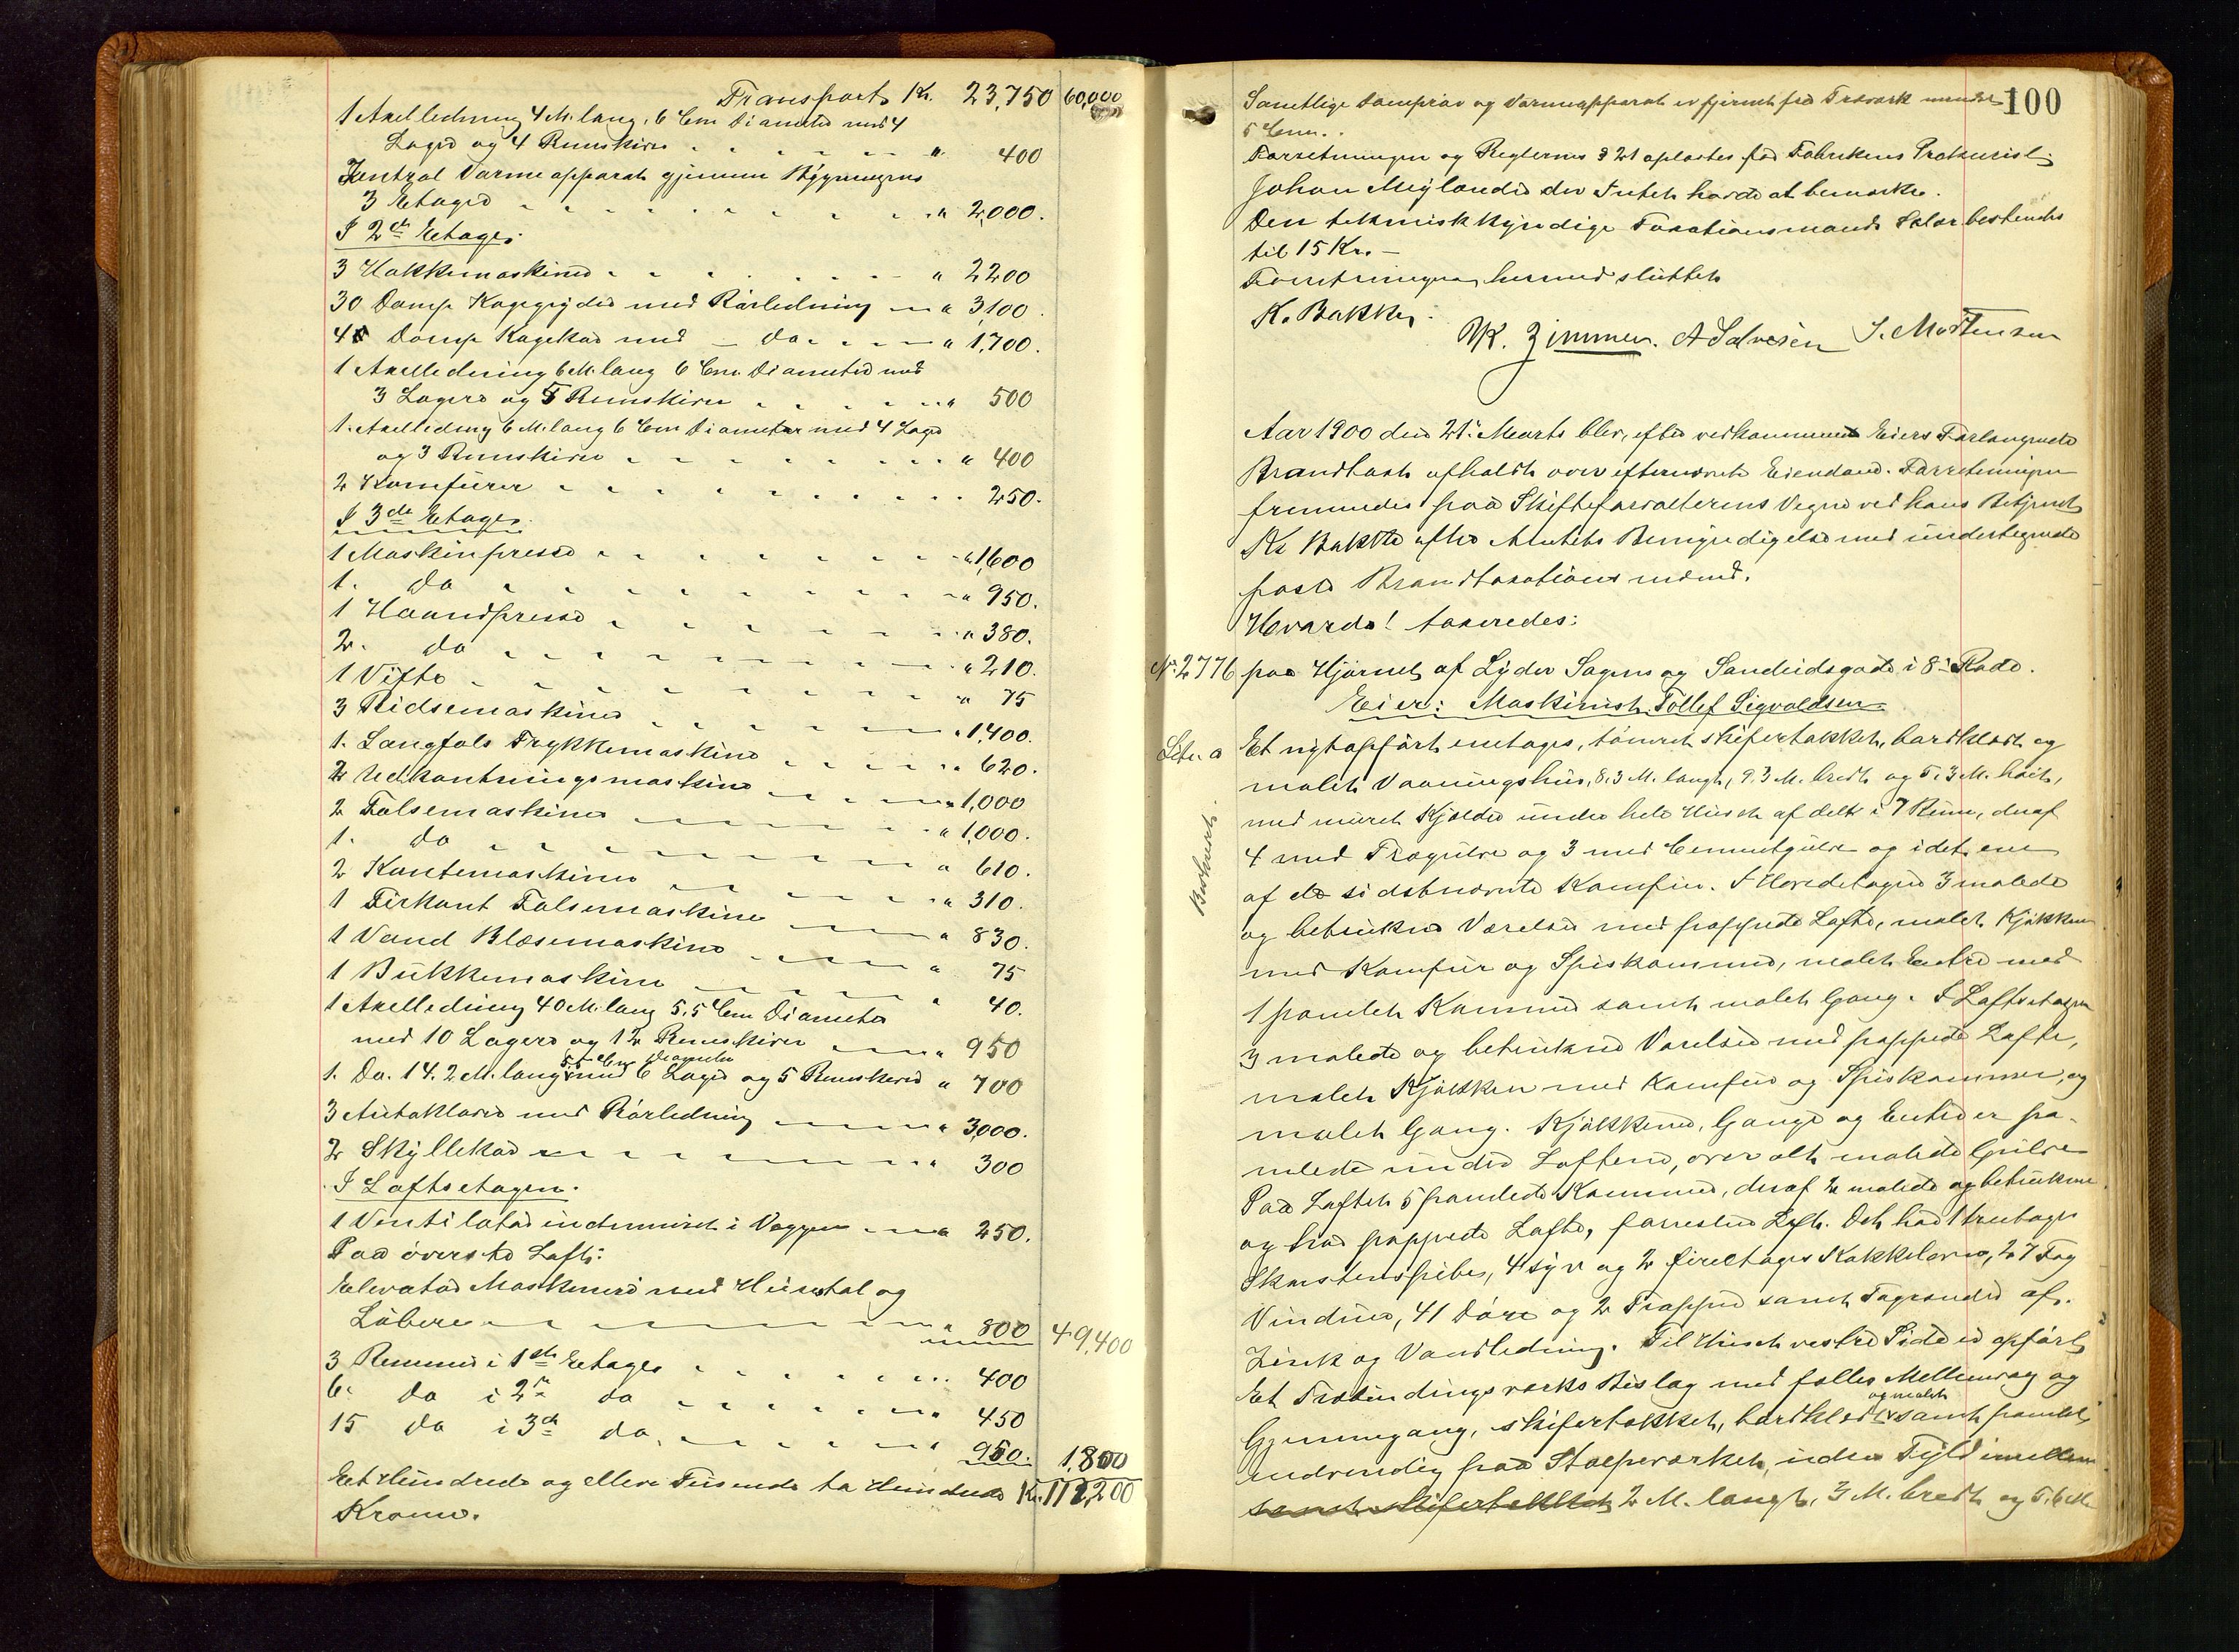 Transport Kr. 23,750 60,000
1 Axelledning 4 M. lang, 6 Cm Diameter med 4
Lager og 4 Remskiver " 400
Zentral Varmeapparat gjennem Bygningens
3 Etager " 2,000.
I 2den Etage:
3 Hakkemaskiner " 2200
30 Damp Kogegryder med Rørledning " 3,100.
4 Damp Kogekar med — Do " 1,700.
1 Axelledning 6 M. lang 6 Cm. Diameter med
3 Lagere og 5 Remskiver " 500
1. Axelledning 6 M. lang 6 Cm Diameter med 4 Lager
og 3 Remskiver " 400
2 Komfurer 250.
I 3de Etage.
1 Maskinpresse " 1,600
1. do " 950.
1 Haandpresse " 380.
2. do " 210.
1 Vifte " 75
3 Ridsemaskiner " 1,400.
1. Langfals Trykkemaskine " 620.
2 Udkantningsmaskine " 1,000
2 Falsemaskiner " 1,000.
1. do " 610.
2 Kantemaskiner " 310.
1 Firkant Falsemaskine " 830.
1 Vand Blæsemaskine " 75
1 Bukkemaskine " 40.
1 Axelledning 40 M. lang 5,5 Cm Diameter
med 10 Lagere og 12 Remskiver " 950
5,5 Cm Diameter
1. Do. 14.2 M. lang med 6 Lager og 5 Remskiver " 700
3 Autoklaver med Rørledning " 3,000.
2 Skyllekar " 300
I Loftsetagen.
1 Ventilator indmuret i Væggen " 250.
Paa øverste Loft:
Elevator Maskineri med Heisetal og
Løbere " 800 49,400
3 Remmer i 1ste Etage 400
6. do i 2den do " 450
15 do i 3de do " 950. 1,800
Et Hundrede og elleve Tusende to Hundrede Kr. 111,200
Kroner.
100
Samtlige Damprør og Varmeapparat er fjernet fra Træværk mindst
5 Cm.
Forretningen og Reglernes § 21 oplæstes for Fabrikens Prokurist
Johan Meylander der Intet havde at bemærke.
Den teknisk kyndige Taxationsmands Salær bestemtes
til 15 Kr. —
Forretningen hermed sluttet
K. Bakke.
W. Zimmer. A Salvesen S. Mortensen
Aar 1900 den 21. Marts blev, efter vedkommende Eiers Forlangende
Brandtaxt afholdt over efternævnte Eiendom. Forretningen
fremmedes paa Skifteforvalterens Vegne ved hans Betjent
K. Bakke efter Amtets Bemyndigelse med undertegnede
faste Brandtaxationsmænd.
Hvorda! taxeredes:
No. 2776 paa Hjørnet af Lyder Sagens og Sandeidsgade i 8. Rode.
Eier: Maskinist Tollef Sigvaldsen
Litr. a Et nyt opført enetages, tømret skifertækket, bordklædt og
malet Vaaningshus, 8,3 M. langt, 9,3 M. bredt og 5,3 M. høit,
med muret Kjelder under hele Huset afdelt i 7 Rum, deraf
4 med Trægulve og 3 med Cementgulve og i det ene
af de sidstnævnte Komfur. I Hovedetagen 3 malede
og betrukne Værelser med pappede Lofte, malet Kjøkken
med Komfur og Spiskammer, malet Entre med
1 panelet Kammer samt malet Gang. I Loftsetagen
3 malede og betrukne Værelser med pappede Lofte,
malet Kjøkken med Komfur og Spiskammer, og
malet Gang. Kjøkkener, Gange og Entreer pa-
nelede under Loftene, over alt malede Gulve
Paa Loftet 5 panelede Kammer, deraf 2 malede og betrukne
og har pappede Lofte, forresten Loft. Det har 1 treetages
Skorstenspibe, 4 syv og 2 fireetages Kakkelovne, 27 Fag
Vinduer, 41 Døre og 2 Trapper samt Tagrender af
Zink og Vandledning. Til Husets vestre Side er opført
Et Træbindingsværks Bislag med fælles Mellemvæg og
og malet
Gjennemgang, skifertækket, bordklædt samt panelet
indvendig paa Stolpeværket, uden Fyld imellem
samt skifertækket 2 M. langt, 3 M. bredt og 5,6 M